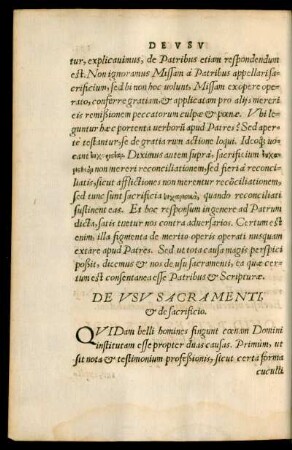 DE VSV
tur, explicauimus, de Patribus etiam respondendum
est. Non ignoramus Missam à Patribus appellari sa-
crificium, sed hi non hoc uolunt, Missam ex opere ope-
rato, conferre gratiam, & applicatam pro alijs mereri
eis remissionem peccatorum culpæ & pœnæ. Vbi le-
guntur hæc portenta uerborũ apud Patres? Sed aper-
tè testantur, se de gratiarum actione loqui. Ideoq́; uo-
cant ἐυχαριστίαν. Diximus autem suprà, sacrificium ἐυχαρι-
στικὸν non mereri reconciliationem, sed fieri à reconci-
liatis, sicut afflictiones non merentur recõciliationem,
sed tunc sunt sacrificia ἐυχαριστικὰ, quando reconciliati
sustinent eas. Et hoc responsum in genere ad Patrum
dicta, satis tuetur nos contra aduersarios. Certum est
enim, illa figmenta de merito operis operati nusquam
extare apud Patres. Sed ut tota causa magis perspici
possit, dicemus & nos de usu sacramenti, ea quæ cer-
tum est consentanea esse Patribus & Scripturæ.
DE VSV SACRAMENTI,
& de sacrificio.
QVIDam belli homines fingunt cœnam Domini
institutam esse propter duas causas. Primùm, ut
sit nota & testimonium professionis, sicut certa forma
cuculli